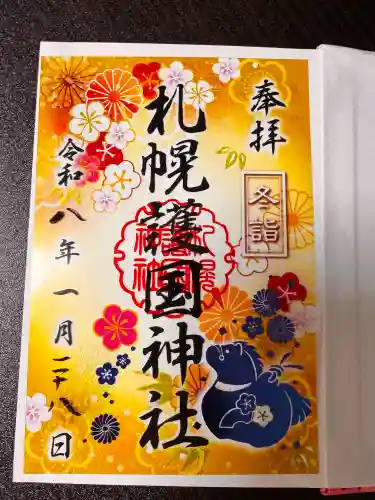 奉拝
冬詣
札幌護国神社
令和八年一月二十八日